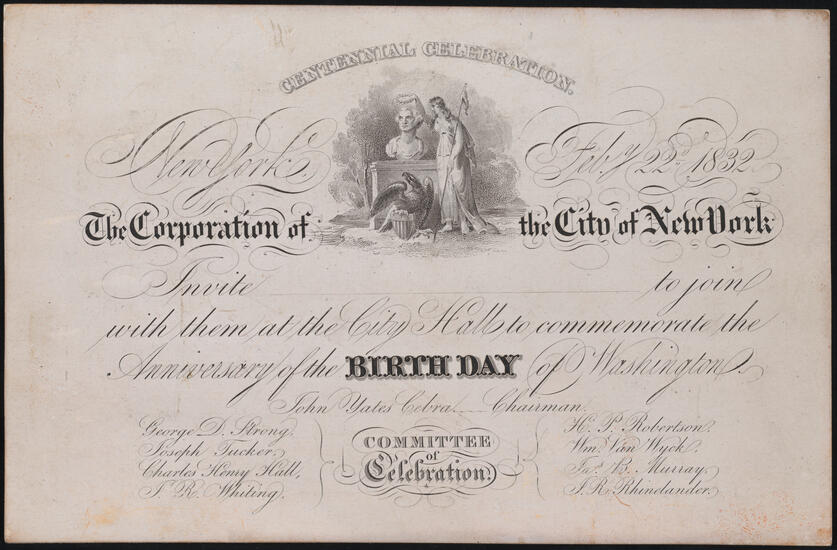 CENTENNIAL CELEBRATION.
New York. Feby. 22d. 1832
The Corporation of the City of New York
Invite to join
with them at the City Hall to commemorate the
Anniversary of the BIRTH DAY of Washington.
John Yates Cebra Chairman.
George D. Strong.
Joseph Tucker.
Charles Henry Hall,
J. R. Whiting.
COMMITTEE
of
Celebration.
H. P. Robertson.
Wm. Van Wyck.
Jas. B. Murray.
J. R. Rhinelander.